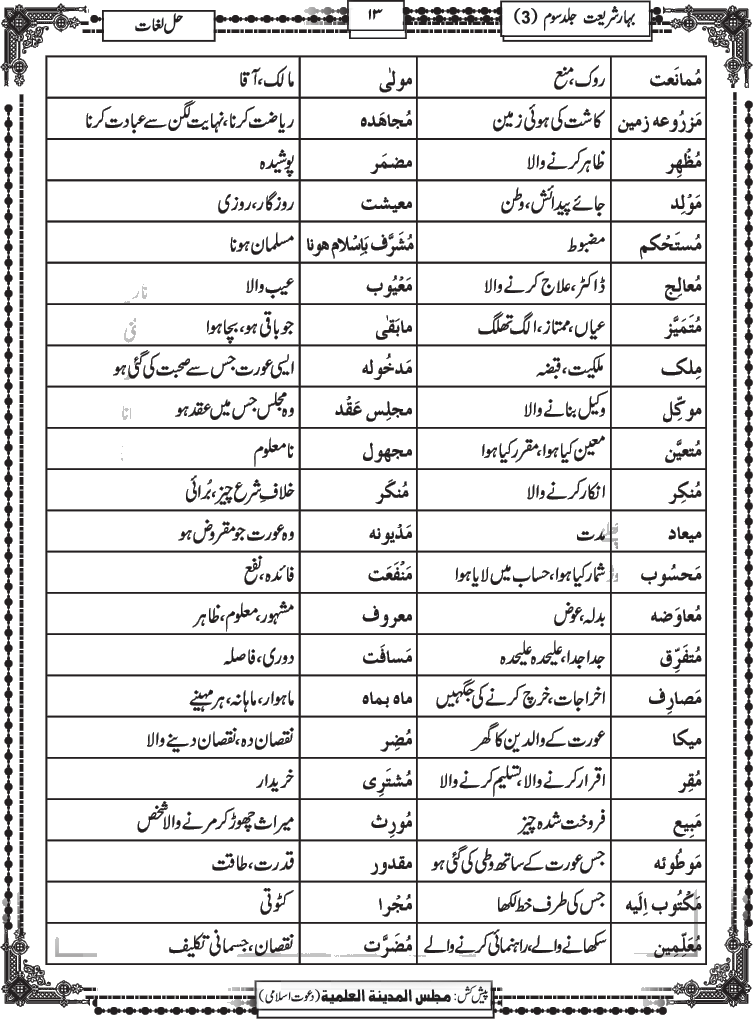 بہارِشریعت جلد سوم (3) ۱۳ حل لغات
مُمانَعت روک، منع مولٰی مالک، آقا
مَزرُوعہ زمین کاشت کی ہوئی زمین مُجاهَدہ ریاضت کرنا، نہایت لگن سے عبادت کرنا
مُظْهِر ظاہر کرنے والا مضمَر پوشیدہ
مَوْلِد جائے پیدائش، وطن معیشت روزگار، روزی
مُستَحْکم مضبوط مُشَرَّف بَاِسْلام هونا مسلمان ہونا
مُعالِج ڈاکٹر، علاج کرنے والا مَعْیُوب عیب والا
مُتَمَیَّز عیاں، ممتاز، الگ تھلگ مابَقٰی جو باقی ہو، بچا ہوا
مِلک ملکیت، قبضہ مَدخُولہ ایسی عورت جس سے صحبت کی گئی ہو
موکِّل وکیل بنانے والا مجلِس عَقْد وہ مجلس جس میں عقد ہو
مُتعیَّن معین کیا ہوا، مقرر کیا ہوا مجهول نامعلوم
مُنکِر انکار کرنے والا مُنکَر خلافِ شرع چیز، بُرائی
میعاد مدت مَدْیونہ وہ عورت جو مقروض ہو
مَحسُوب شمار کیا ہوا، حساب میں لایا ہوا مَنْفَعَت فائدہ، نفع
مُعاوَضہ بدلہ، عوض معروف مشہور، معلوم، ظاہر
مُتفَرِّق جدا جدا، علیحدہ علیحدہ مَسافَت دوری، فاصلہ
مَصارِف اخراجات، خرچ کرنے کی جگہیں ماہ بماہ ماہوار، ماہانہ، ہر مہینے
میکا عورت کے والدین کا گھر مُضِر نقصان دہ، نقصان دینے والا
مُقِر اقرار کرنے والا، تسلیم کرنے والا مُشتَرِی خریدار
مَبِیع فروخت شدہ چیز مُورِث میراث چھوڑ کر مرنے والا شخص
مَوطُوئہ جس عورت کے ساتھ وطی کی گئی ہو مقدور قدرت، طاقت
مَکْتُوب اِلَیه جس کی طرف خط لکھا مُجْرا کٹوتی
مُعَلِّمِین سکھانے والے، راہنمائی کرنے والے مُضَرَّت نقصان، جسمانی تکلیف
پیش کش: مجلس المدینة العلمیة (دعوت اسلامی)